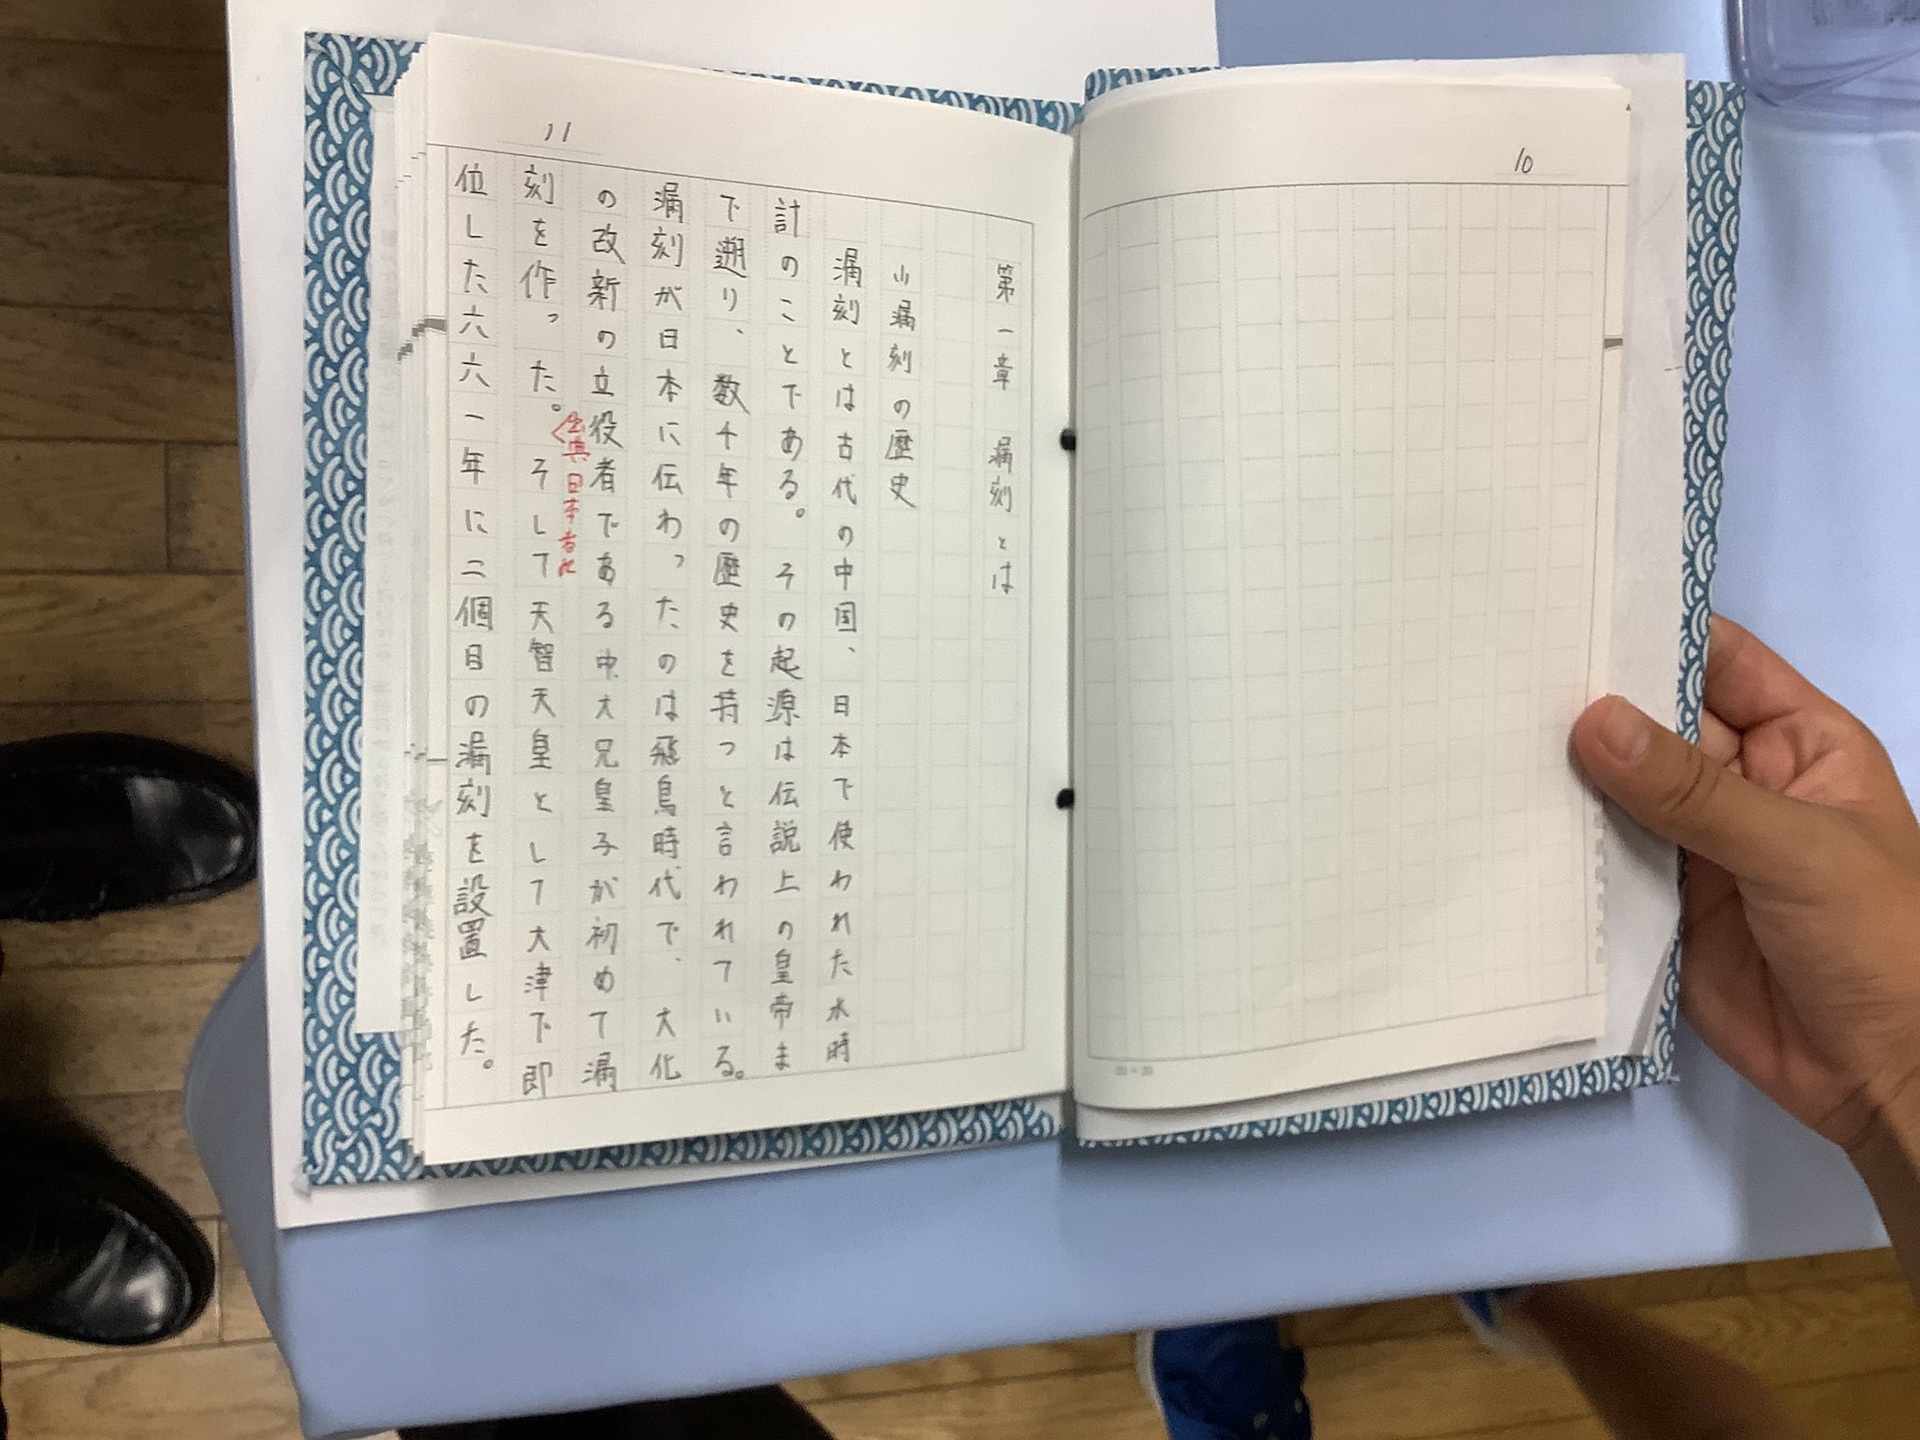 10
11
第一章　漏刻とは
(1)漏刻の歴史
漏刻とは古代の中国、日本で使われた水時
計のことである。その起源は伝説上の皇帝ま
で遡り、数千年の歴史を持つと言われている。
漏刻が日本に伝わったのは飛鳥時代で、大化
の改新の立役者である中大兄皇子が初めて漏
刻を作った。そして天智天皇として大津で即
出典日本書紀
位した六六一年に二個目の漏刻を設置した。